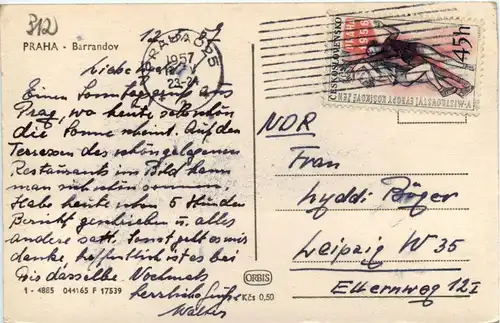 312
PRAHA - Barrandov
PRAHA 025
1957
23-24
ČESKOSLOVENSKO
1956
45h
V. MISTROVSTVÍ EVROPY V KOŠÍKOVÉ ŽEN
Einen Sonntagsgruß aus
Prag, wo heute sehr schön
die Sonne scheint. Auf den
Terrassen des schön gelegenen
Restaurants im Bild kann
man sich schön sonnen.
Habe heute schon 5 Stunden
Bericht geschrieben u. alles
andere satt. Sonst geht es mir
danke, hoffentlich ist es bei
Dir dasselbe. Nochmals
herrliche Grüße
Walter
NDR
Frau
Lyddi Böger
Leipzig W 35
Elternweg 12 I
ORBIS
1 - 4885 044165 F 17539
Kčs 0,50